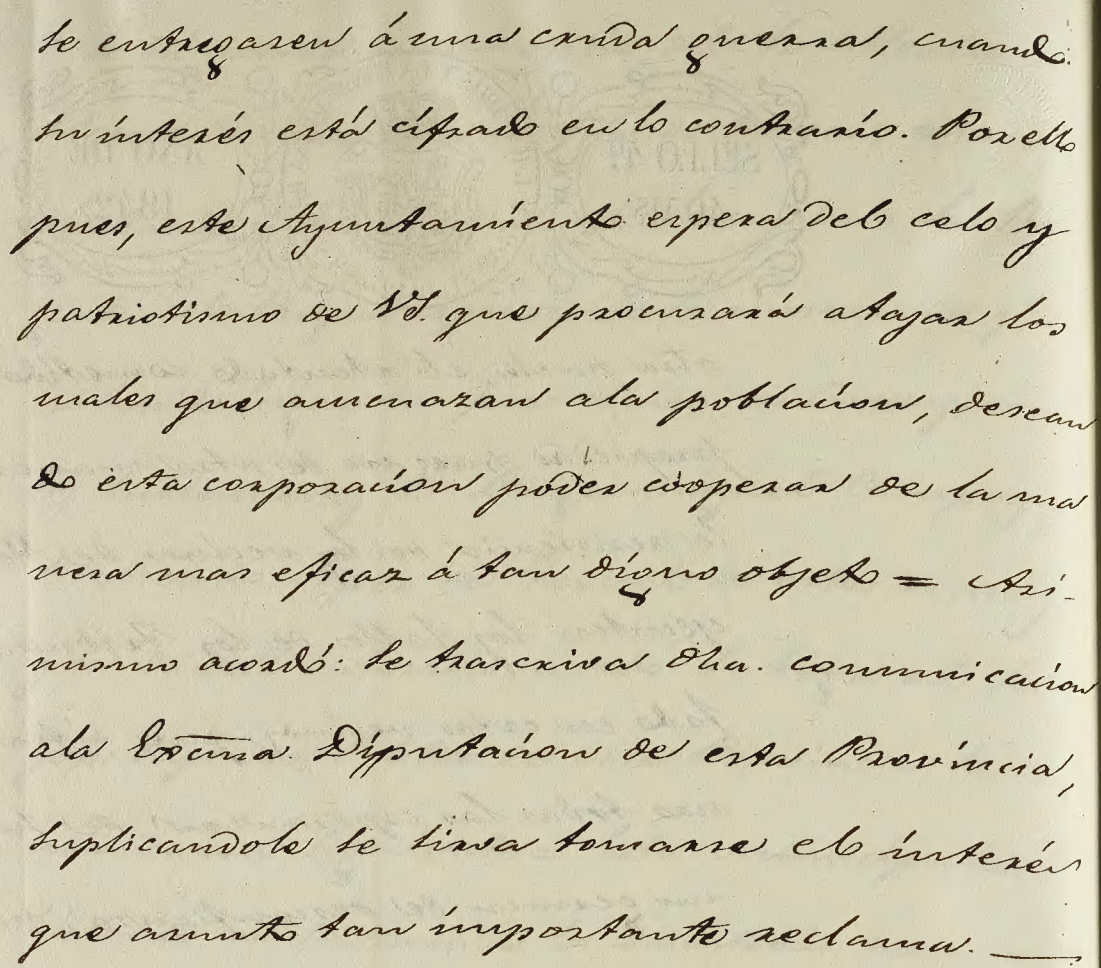 se entregasen á una cruda guerra, cuando
su interés está cifrado en lo contrario. Por ello
pues, este Ayuntamiento espera del celo y
patriotismo de VS. que procurará atajar los
males que amenazan ala poblacion, desean
do esta corporacion poder cooperar de la ma
nera mas eficaz á tan digno objeto = Asi-
mismo acordó: se trascriva dha. comunicacion
ala Excma. Diputacion de esta Provincia,
suplicandole se sirva tomarse el interés
que asunto tan importante reclama. —